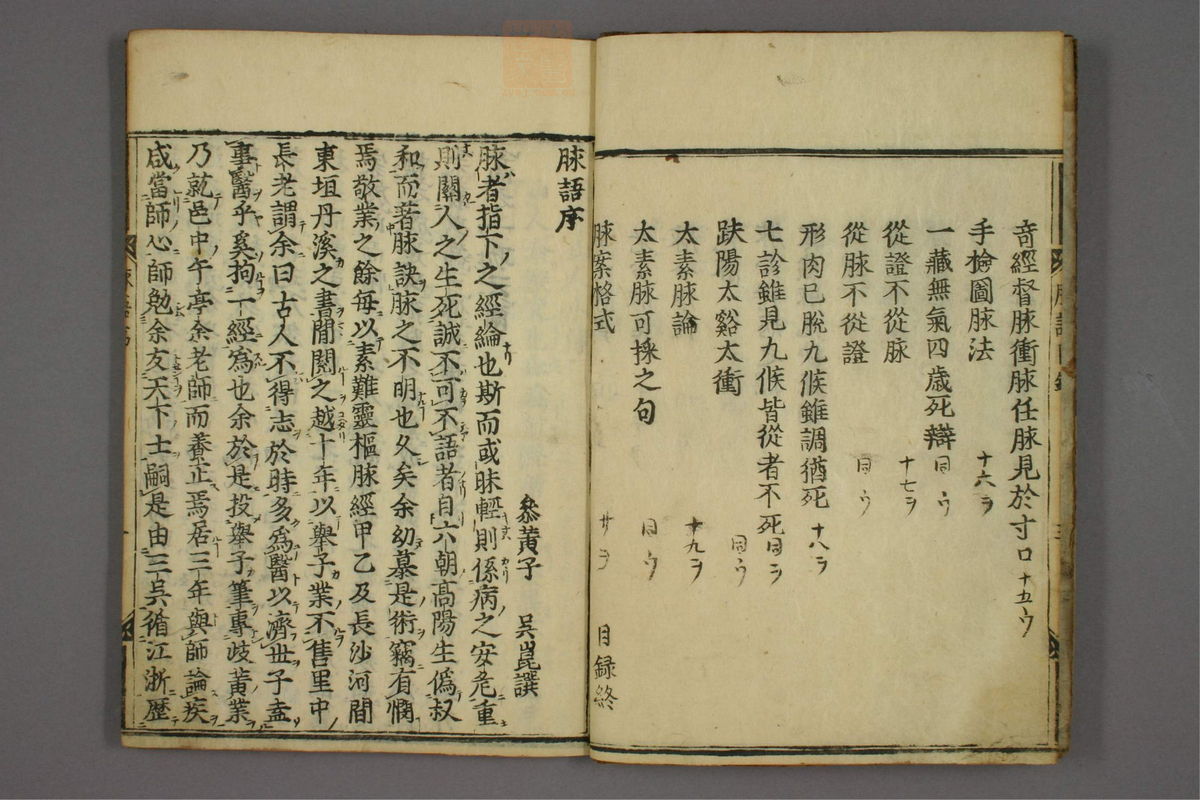 奇經督脉衝脉任脉見於寸口 十五ウ
手檢圖脉法 十六ヲ
一藏無氣四歲死辯 同ウ
從證不從脉 十七ヲ
從脉不從證 同ウ
形肉已脫九候雖調猶死 十八ヲ
七診雖見九候皆從者不死 同ヲ
趺陽太谿太衝 同ウ
太素脉論 十九ヲ
太素脉可採之句 同ウ
脉案格式 廿ヲ 目錄終
脉語序
叅黃子 吳崑譔
脉者指下之經綸也斯而或昧輕則係病之安危重
則關人之生死誠不可不語者自六朝高陽生僞叔
和而著脉訣脉之不明也久矣余幼慕是術竊有憫
焉敬業之餘每以素難靈樞脉經甲乙及長沙河間
東垣丹溪之書閒閱之越十年以舉子業不售里中
長老謂余曰古人不得志於時多爲醫以濟世子盍
事醫乎奚拘一經爲也余於是投舉子筆專岐黃業
乃就邑中午亭余老師而養正焉居三年與師論疾
咸當師心師勉余友天下士嗣是由三吳循江浙歷